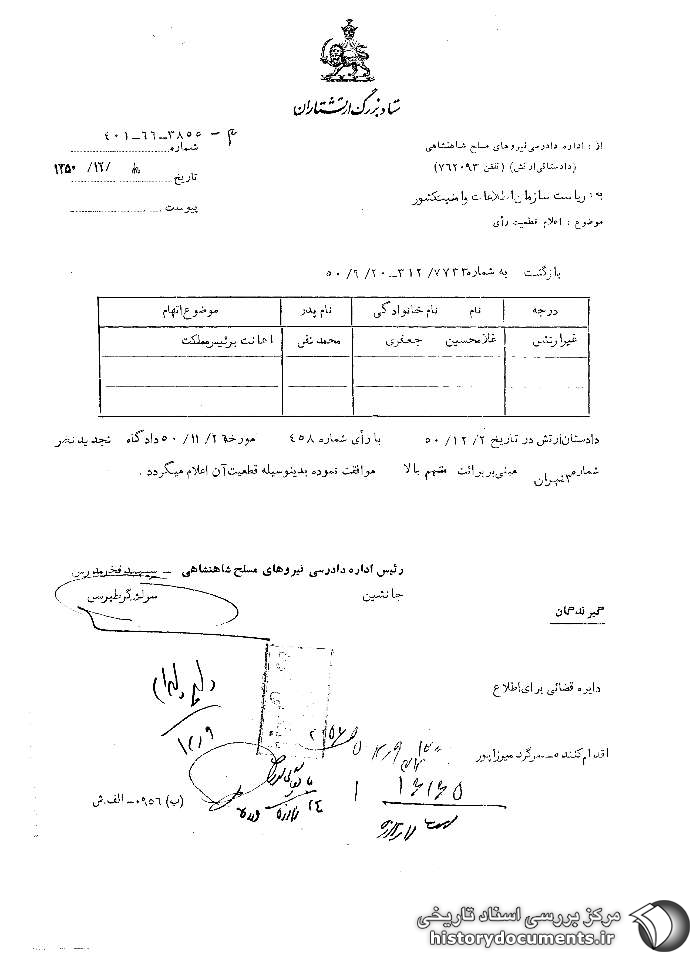 ستاد بزرگ ارتشتاران
از : اداره دادرسی نیروهای مسلح شاهنشاهی
(دادستانی ارتش) (تلفن ۷۶۲۰۹۳)
به : ریاست سازمان اطلاعات و امنیت کشور
موضوع : اعلام قطعیت رأی
شماره ۴۰۱-۶۶-۳۸۵۵-م
تاریخ /۱۲/ ۱۳۵۰
پیوست
بازگشت به شماره ۳۱۲/۷۷۳۲-۵۰/۹/۲۰
درجه نام نام خانوادگی نام پدر موضوع اتهام
غیرارتشی غلامحسین جعفری محمدتقی اهانت برئیس مملکت
دادستان ارتش در تاریخ ۵۰/۱۲/۲ با رأی شماره ۴۵۸ مورخه ۵۰/۱۱/۲۶ دادگاه تجدیدنظر
شماره ۳ تهران مبنی بر برائت متهم بالا موافقت نموده بدینوسیله قطعیت آن اعلام میگردد .
رئیس اداره دادرسی نیروهای مسلح شاهنشاهی - سپهبد فخرمدرس
جانشین
گیرندگان
دایره قضائی برای اطلاع
اقدام کننده - سرگرد میرزاپور
(ب) ۰۹۵۶- الف.ش
مرکز بررسی اسناد تاریخی
historydocuments.ir